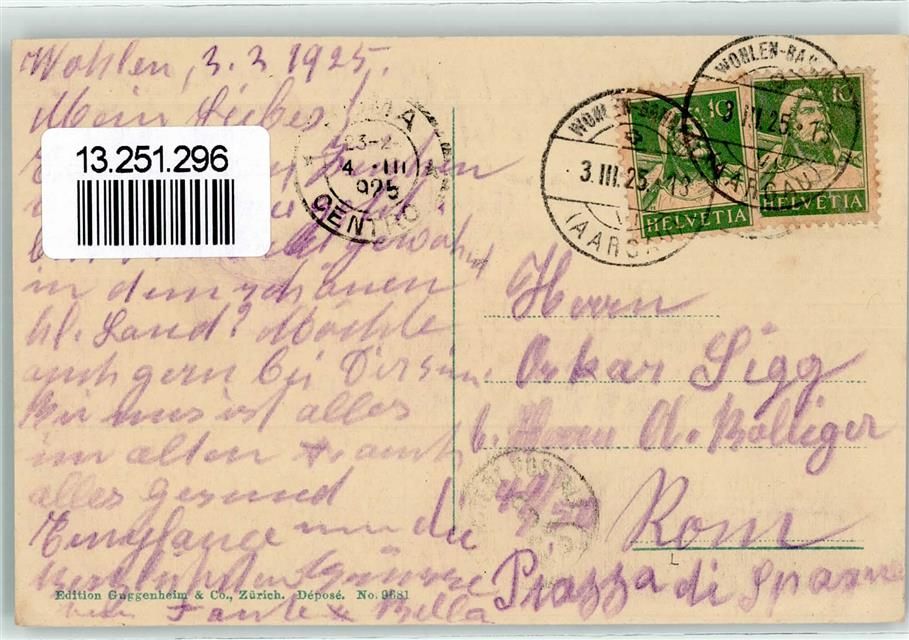 Wohlen, 3.3 1925.
Mein Liebes!
13.251.296
gewöhnt
in dem schönen
hl. Land? Möchte
auch gern bei Dir sein.
Bei uns ist alles
im alten & auch
alles gesund
Empfange nun die
herzlichsten Grüsse
von Tante & Bella
Edition Guggenheim & Co., Zürich. Déposé. No. 9681
ROMA
23-2
4 III
925
CENTRO
WOHLEN
3.III.25. 13
(AARGAU)
WOHLEN
3.III.25. 13
(AARGAU)
10
HELVETIA
10
HELVETIA
Herrn
Oskar Sigg
b. Herrn A. Bolliger
Rom
Piazza di Spagna